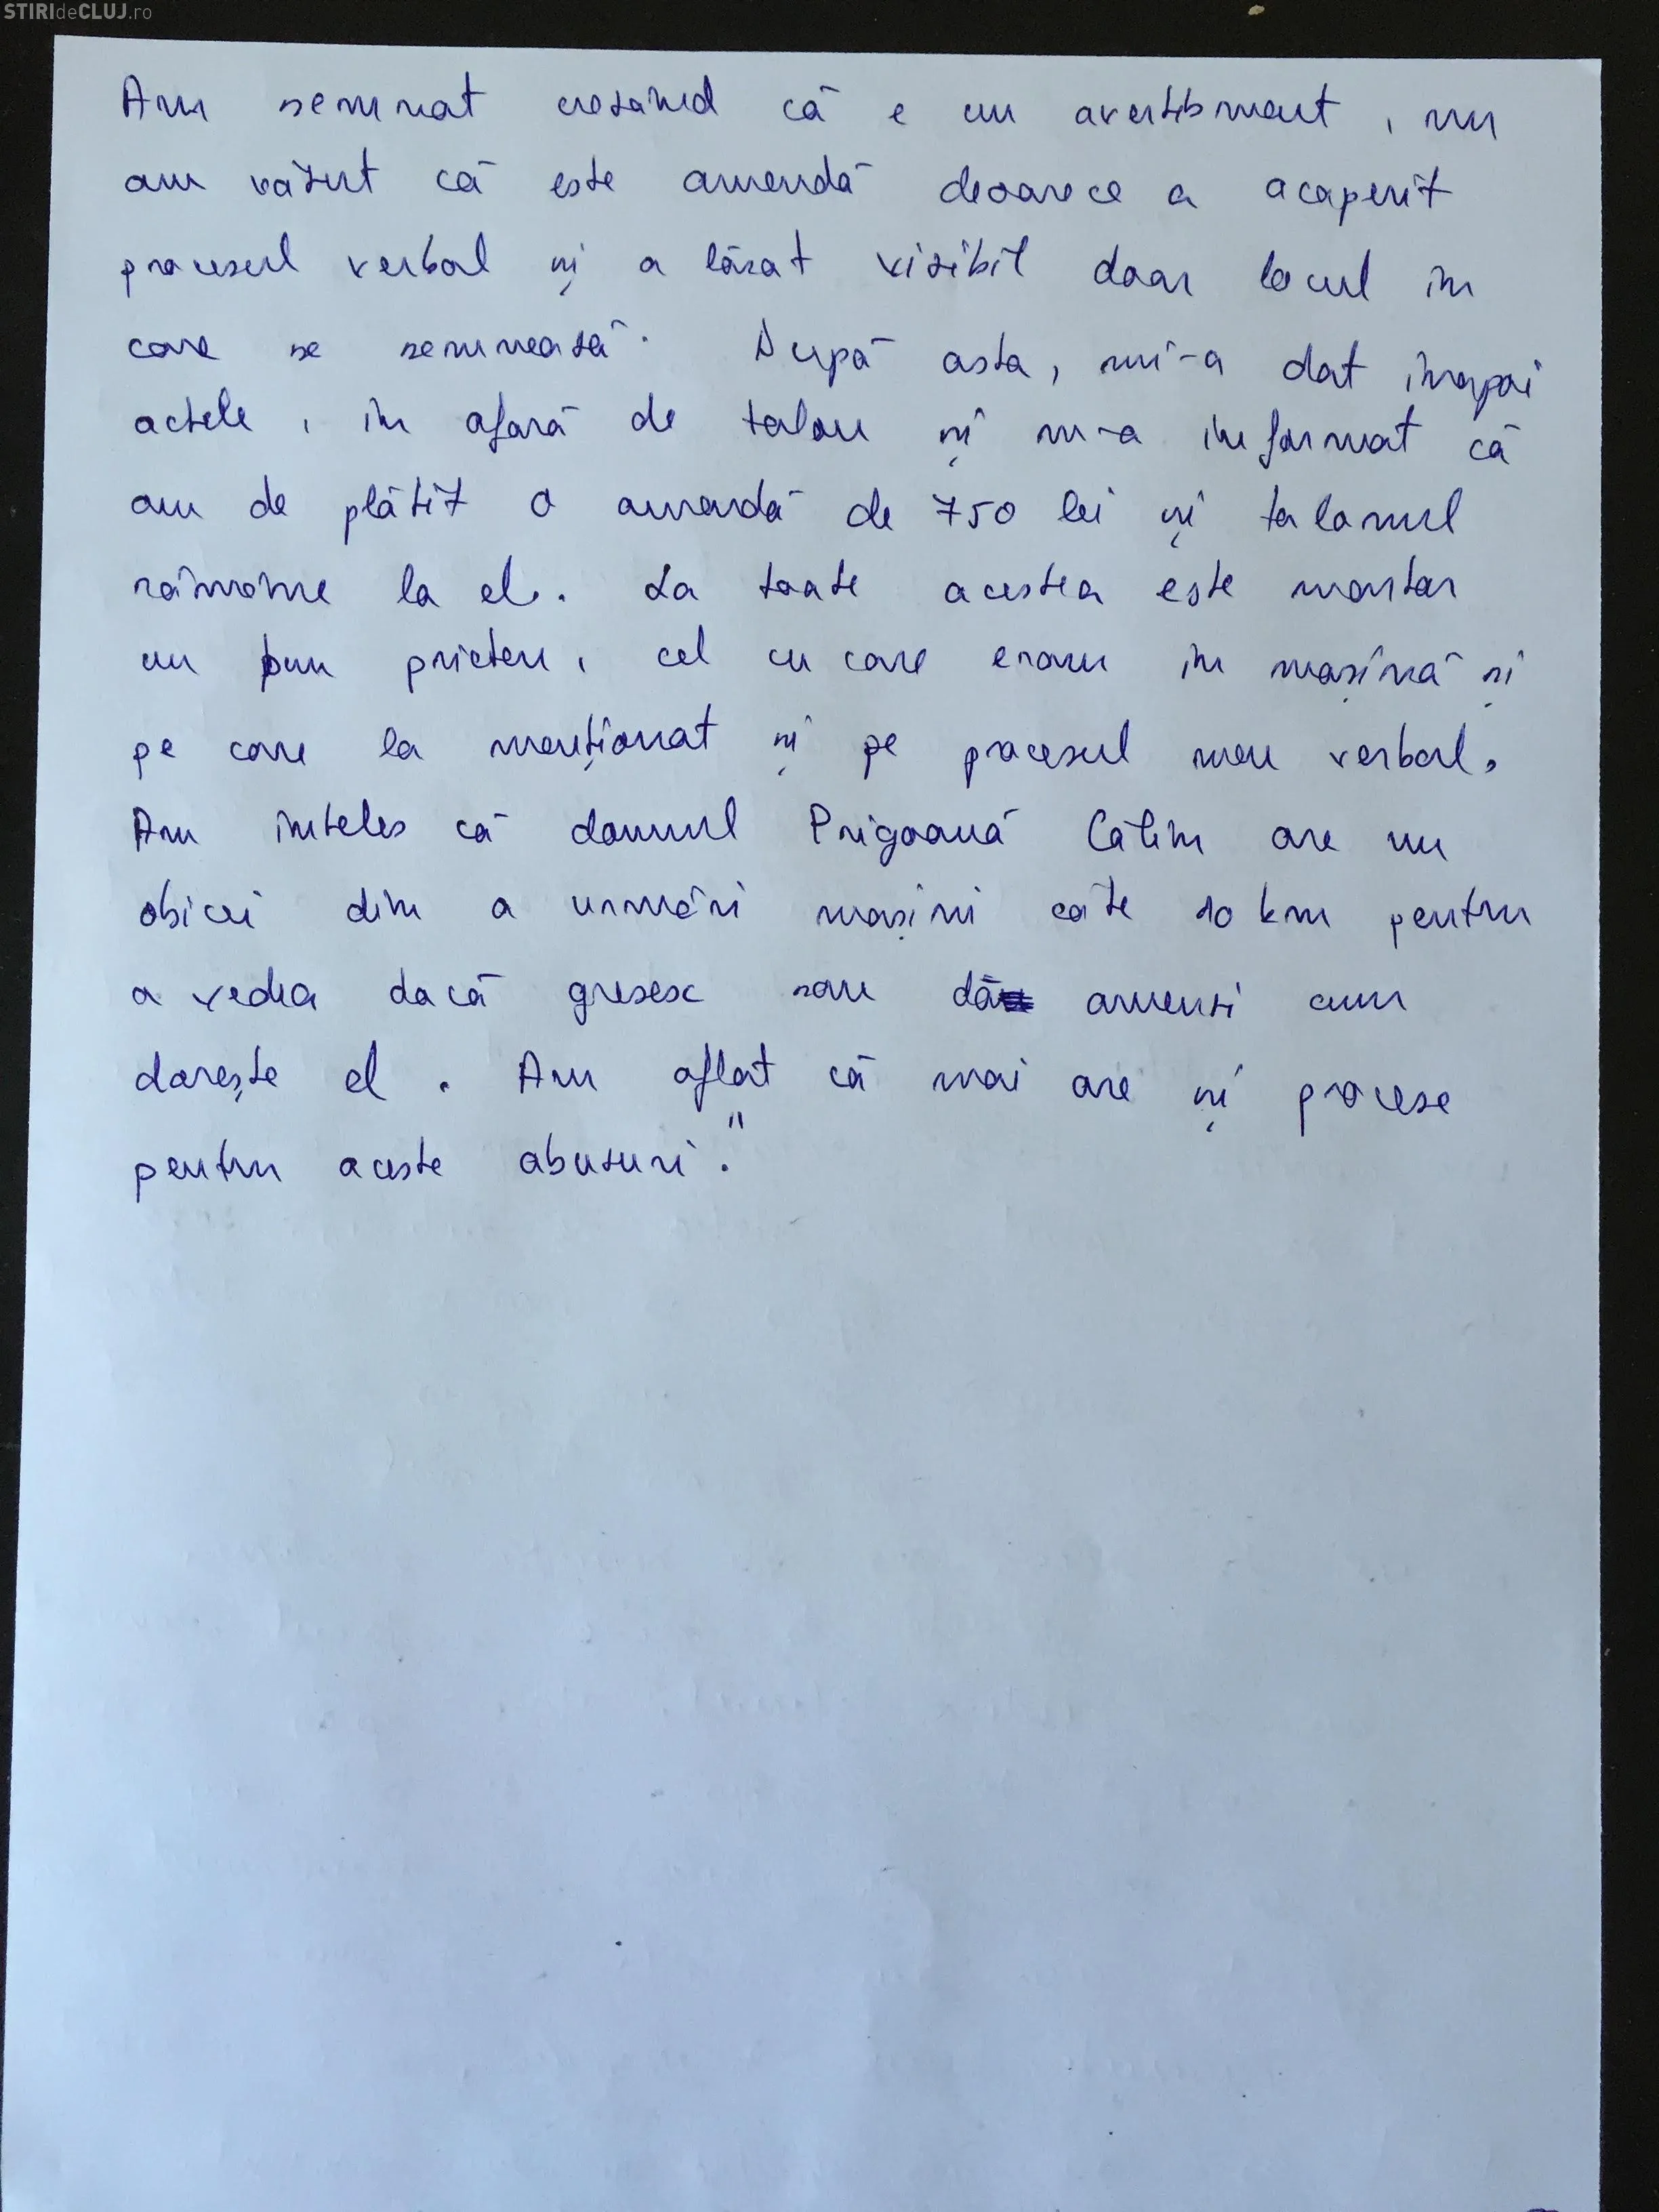 STIRIdeCLUJ.ro
Am semnat crezand că e un avertisment, nu
am văzut că este amendă deoarece a acaperit
procesul verbal și a lăsat vizibil doar locul în
care se semnează. După asta, mi-a dat înapoi
actele, în afară de talon și m-a informat că
am de plătit o amendă de 750 lei și talonul
rămâne la el. La toate acestea este martor
un bun prieten, cel cu care eram în mașină și
pe care la menționat și pe procesul meu verbal.
Am înteles că domnul Prigoană Călin are un
obicei din a urmări mașini câte 10 km pentru
a vedea dacă gresesc sau dă amenzi cum
dorește el. Am aflat că mai are și procese
pentru aceste abuzuri."